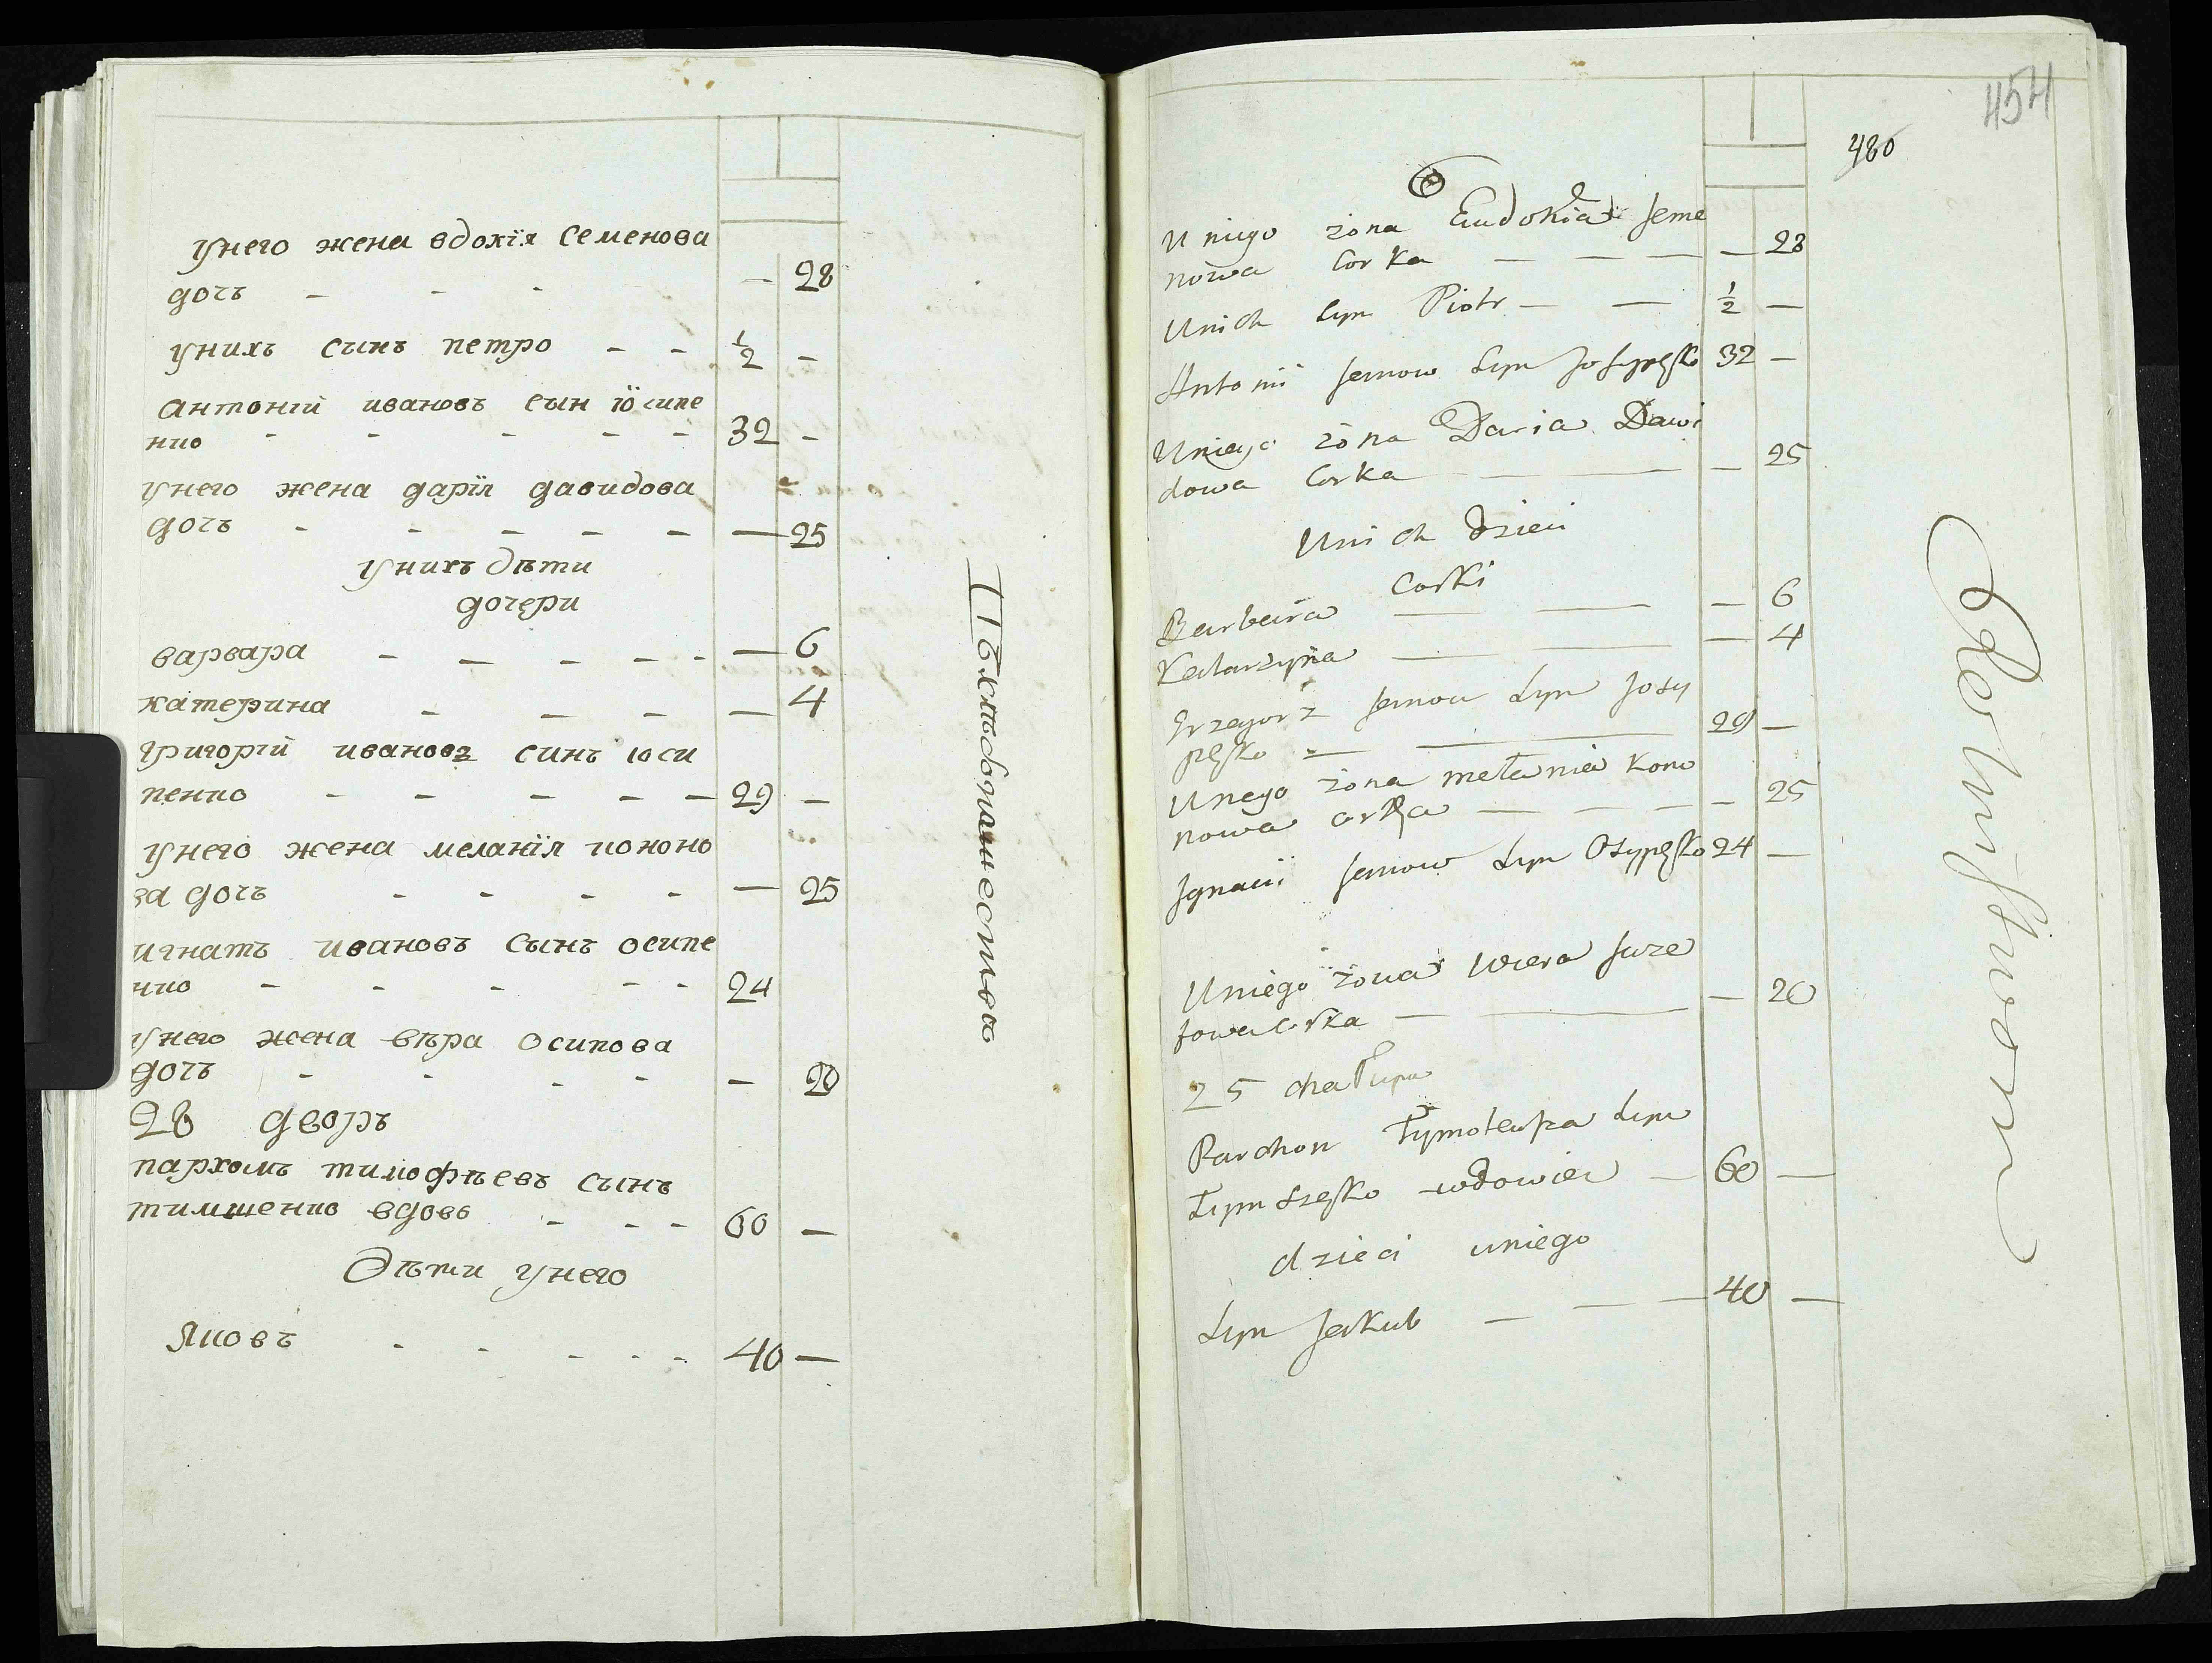 унего жена вдокїя Семенова
дочъ - - - — 28
унихъ сынъ петро - - ½ -
Антонїй ивановъ сын юсипе
нко - - - - - 32 -
унего жена дарїя давидова
дочъ - - - - - — 25
унихъ дѣти
дочери
варвара - - - - - — 6
катерина - - - — 4
григорїй ивановъ синъ юси
пенко - - - - - 29 -
унего жена меланїя кононо
ва дочъ - - - - — 25
игнатъ ивановъ сынъ осипе
нко - - - - - 24
унего жена вѣра осипова
дочъ - - - - — 20
дворъ
пархомъ тимофѣевъ сынъ
тимшенко вдовъ - - - 60 —
Дѣти унего
Яковъ - - - - - 40 —
454
480
U niego żona Eudokia Seme
nowa Corka — — — — 28
Unich Syn Piotr — — ½ —
Antonii Jwanow Syn Josypęko 32 —
Uniego żona Daria Dawi
dowa Corka — — 25
Unich Dzieci
Corki
Barbara — — — 6
Katarzyna — — — 4
Grzegorz Jwanow Syn Josy
pęko — — 29 —
Unego żona metania Kono
nowa Corka — — — — 25
Jgnacii Jwanow Syn Osypęko 24 —
Uniego żona Wiera Juze
fowa Corka — — — 20
25 chałupa
Parchon Tymoteusza Syn
Tymszęko wdowiec — 60 —
dzieci uniego
Syn Jakub — — — 40 —